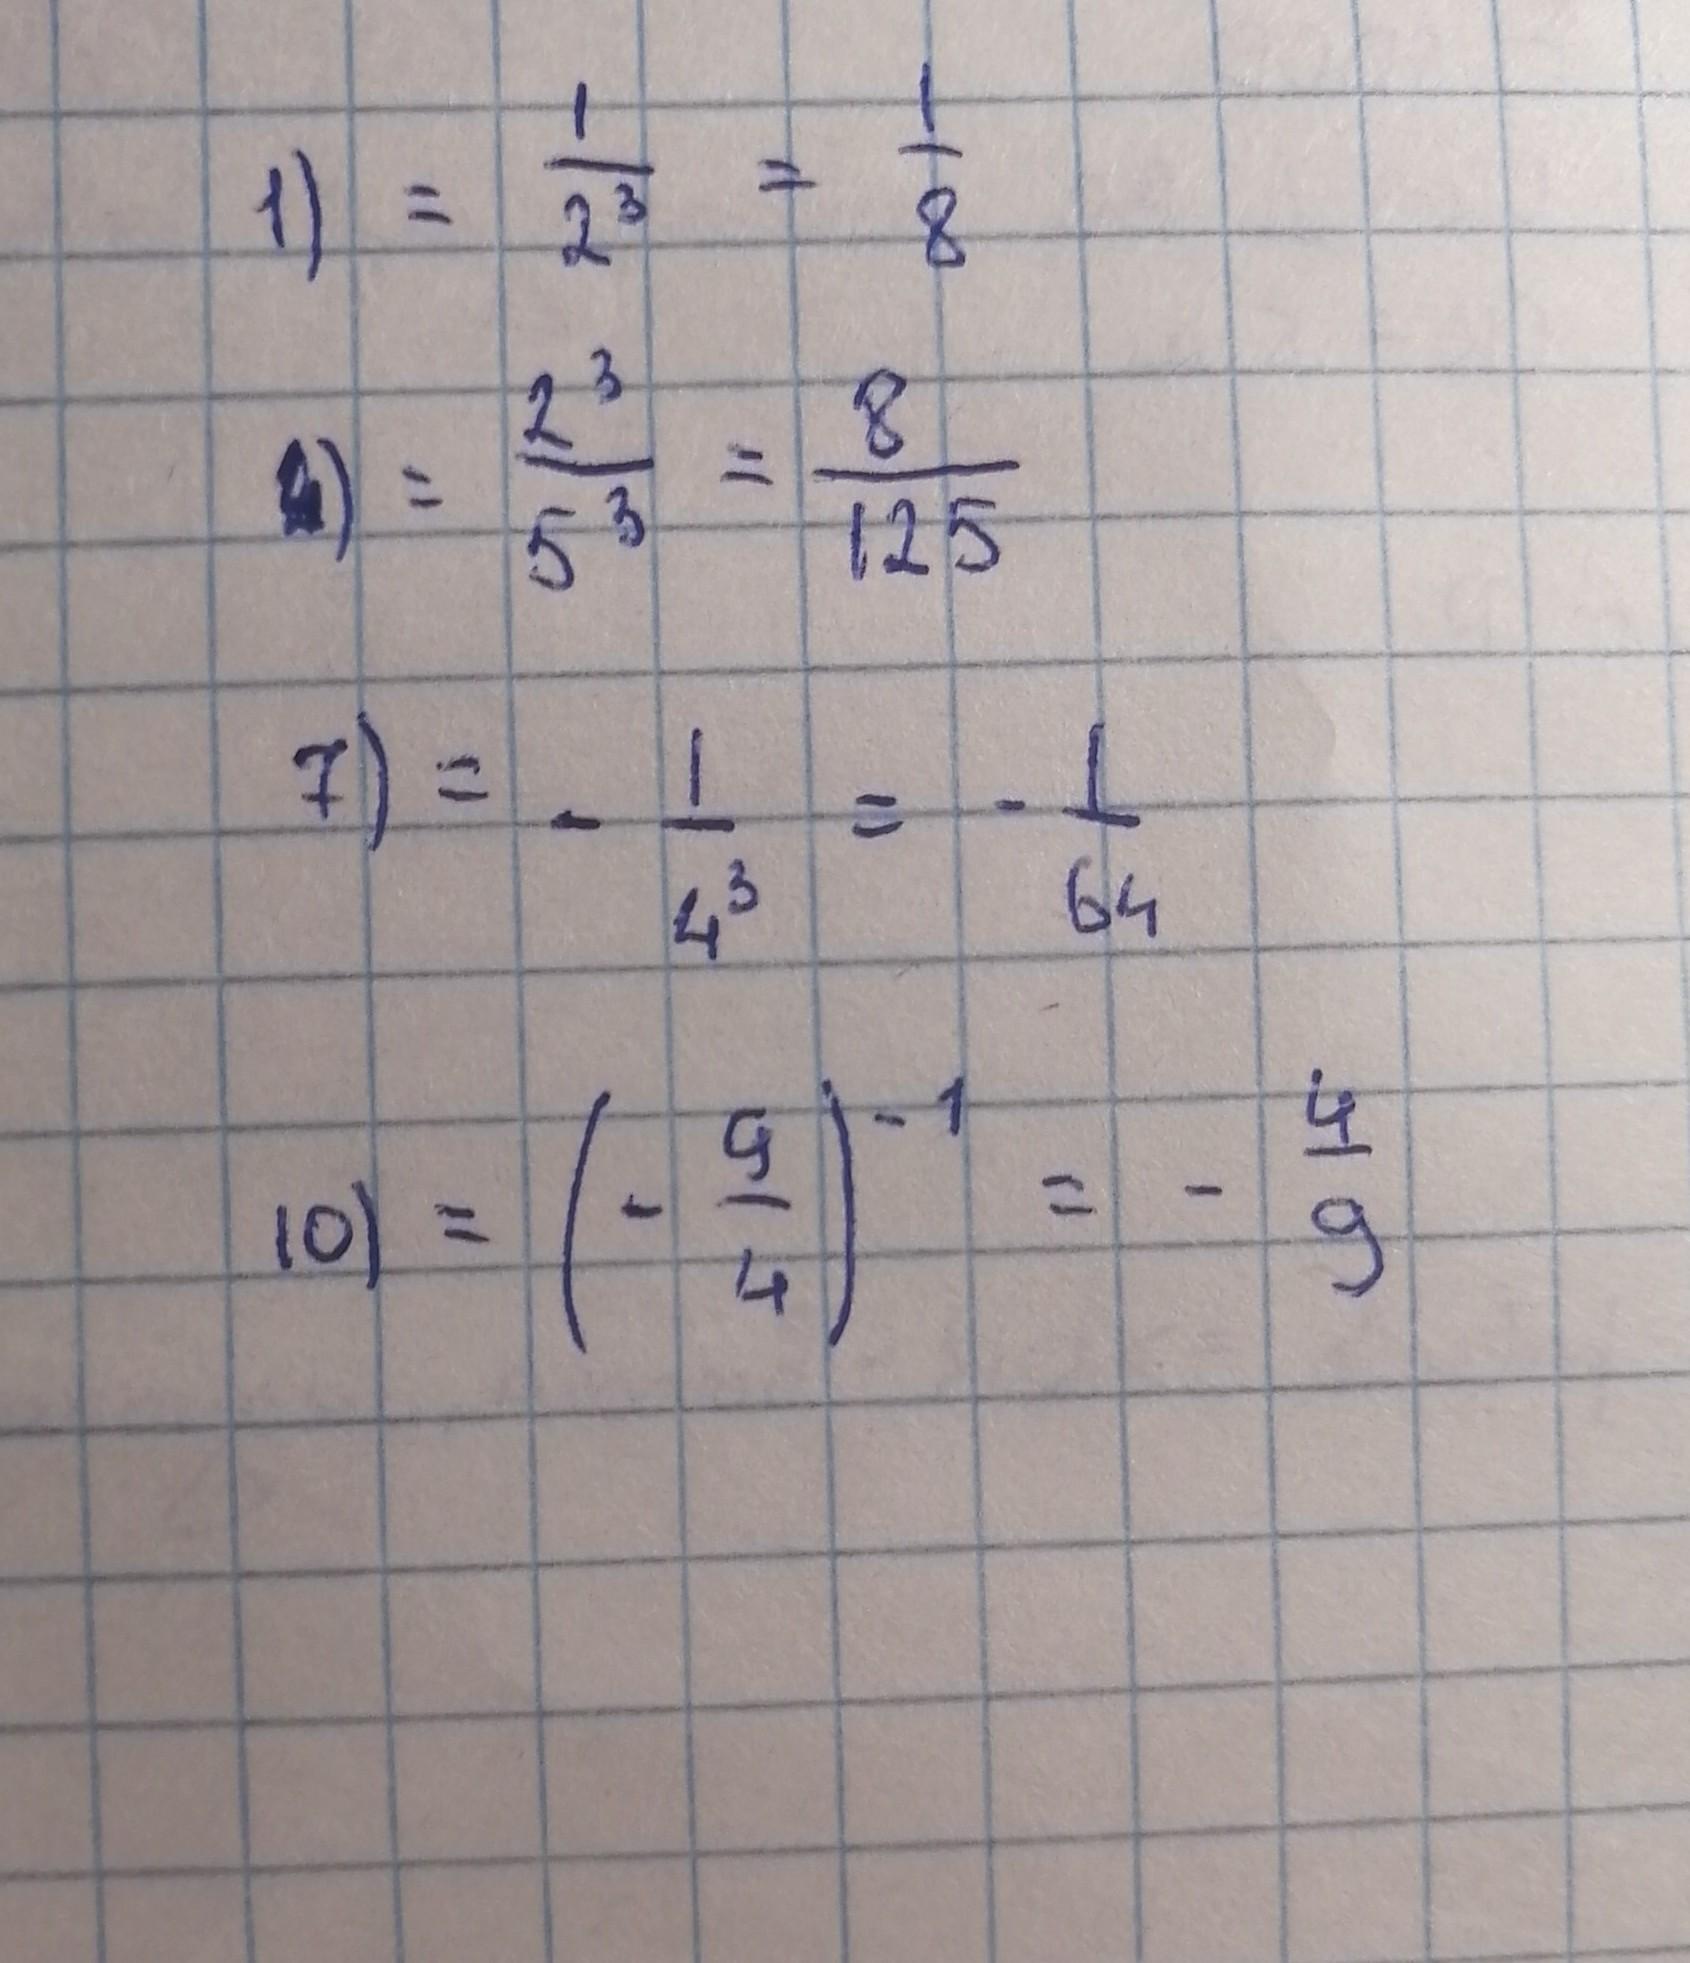 1) = 1/2³ = 1/8
4) = 2³/5³ = 8/125
7) = - 1/4³ = - 1/64
10) = (- 9/4)⁻¹ = - 4/9